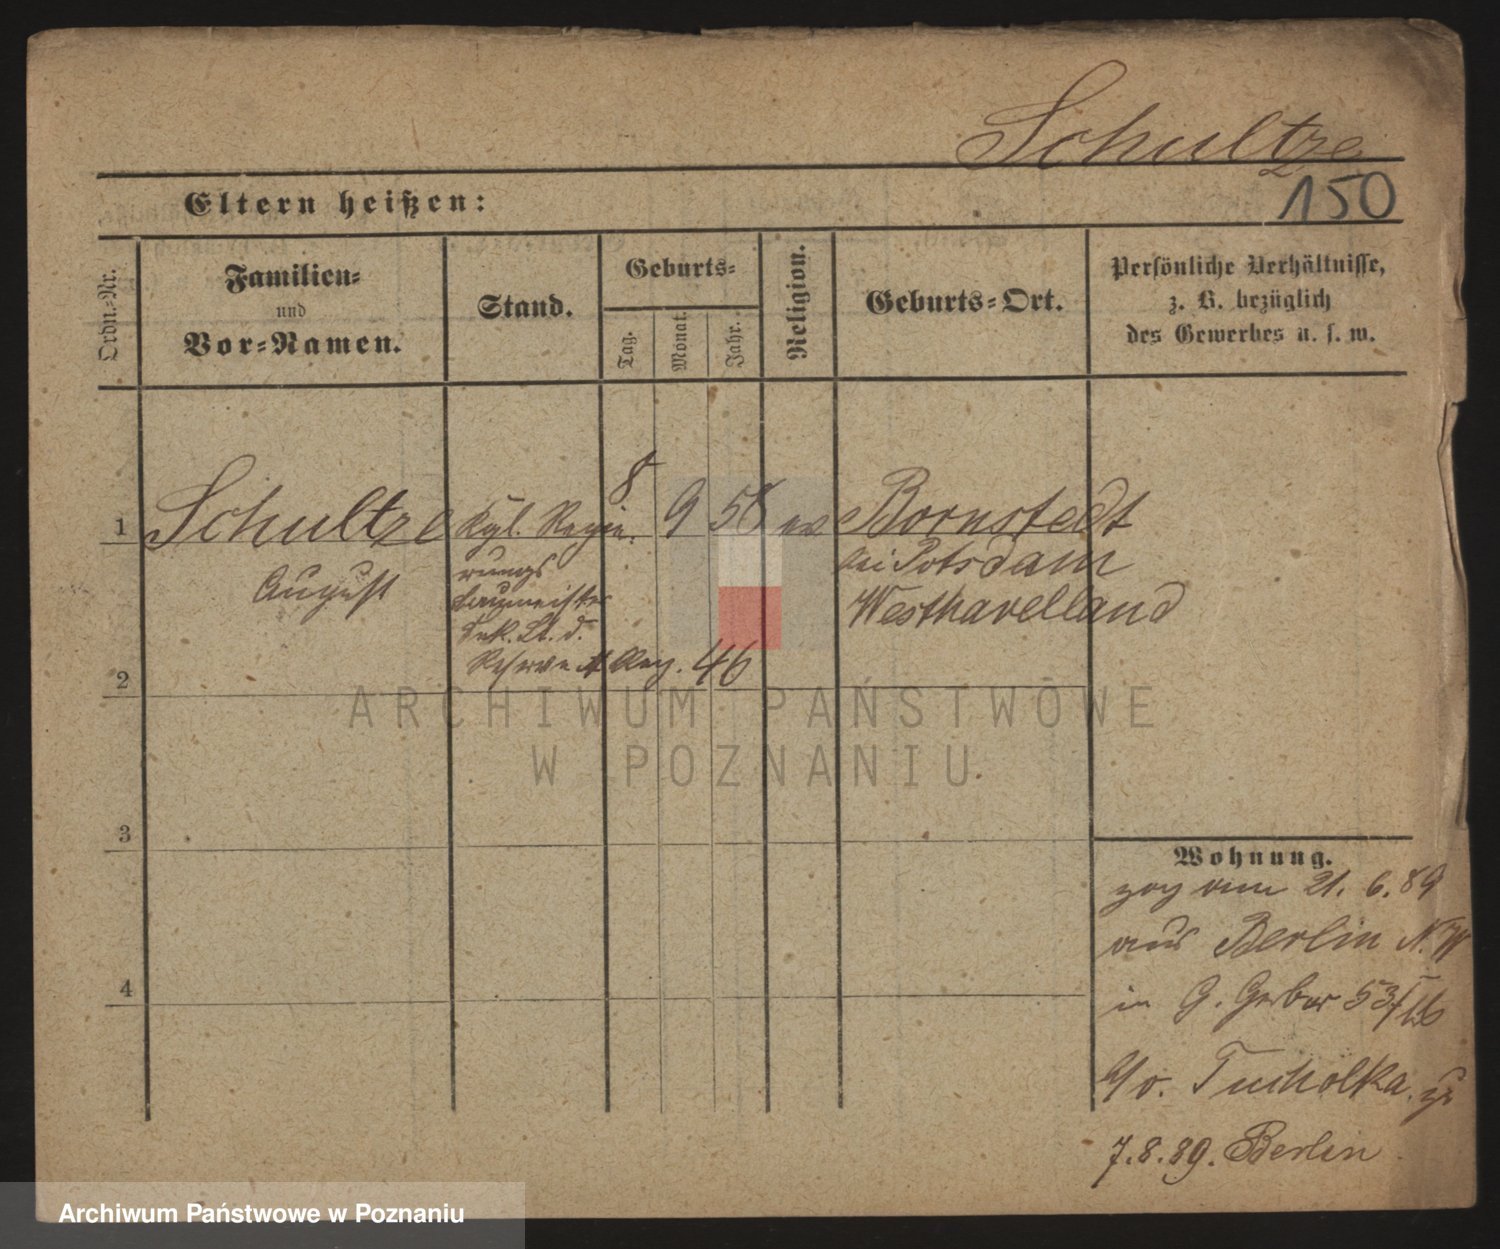 Schultze
150
Eltern heißen:
Ordn.-Nr.
Familien-
und
Vor-Namen.
Stand.
Geburts-
Tag.
Monat.
Jahr.
Religion.
Geburts-Ort.
Persönliche Verhältnisse,
z. B. bezüglich
des Gewerbes u. s. w.
1
Schultze
August
Kgl. Regie-
rungs
baumeister
Sek. Lt. d.
Reserve Reg. 46
8
9
58
ev
Bornstedt
bei Potsdam
Westhavelland
2
3
4
Wohnung.
zog am 21. 6. 89
aus Berlin N.W
in G. Gerber 53/
b/o. Tucholka. zu
7.8.89. Berlin.
ARCHIWUM PAŃSTWOWE
W POZNANIU
Archiwum Państwowe w Poznaniu